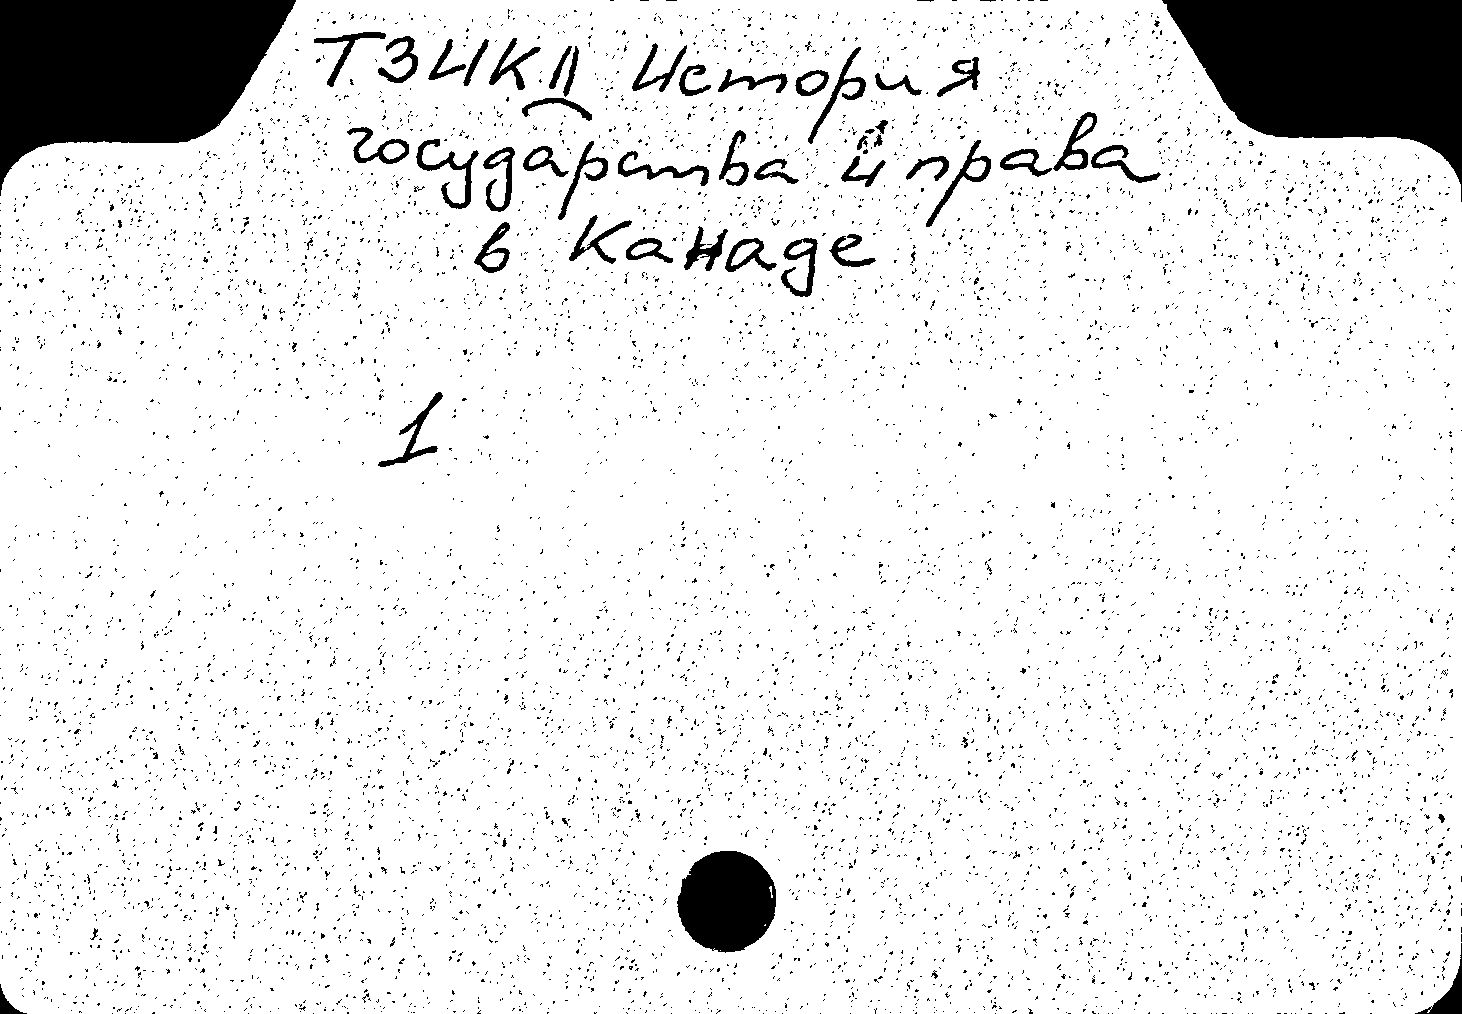 ТЗ4К11 История
государства и права
в Канаде
1